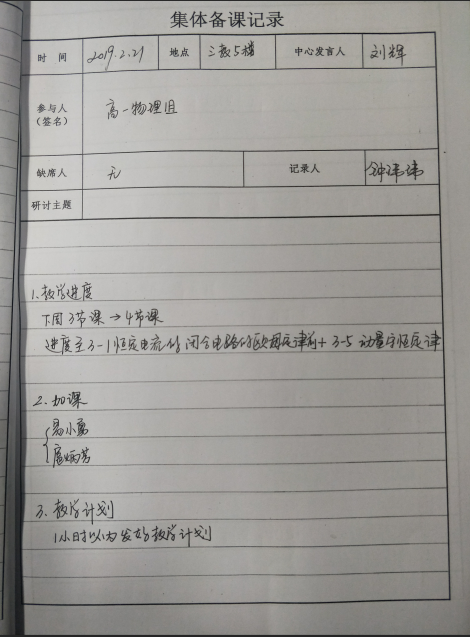 集体备课记录
时 间 2019.2.21 地点 三教5楼 中心发言人 刘辉
参与人
(签名) 高一物理组
缺席人 无 记录人 钟玮玮
研讨主题
1.教学进度
下周3节课→4节课
进度至3-1恒定电流的闭合电路的欧姆定律前+3-5动量守恒定律
2.加课
易小勇
3.教学计划
1小时以内发好教学计划